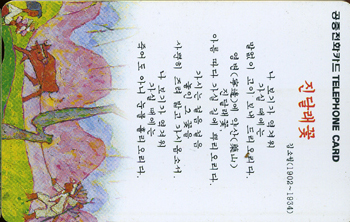 공중전화카드 TELEPHONE CARD
진달래꽃
김소월(1902~1934)
나 보기가 역겨워
가실 때에는
말없이 고이 보내 드리오리다.
영변(寧邊)에 약산(藥山)
진달래꽃,
아름 따다 가실 길에 뿌리오리다.
가시는 걸음 걸음
놓인 그 꽃을
사뿐히 즈려 밟고 가시옵소서.
나 보기가 역겨워
가실 때에는
죽어도 아니 눈물 흘리오리다.